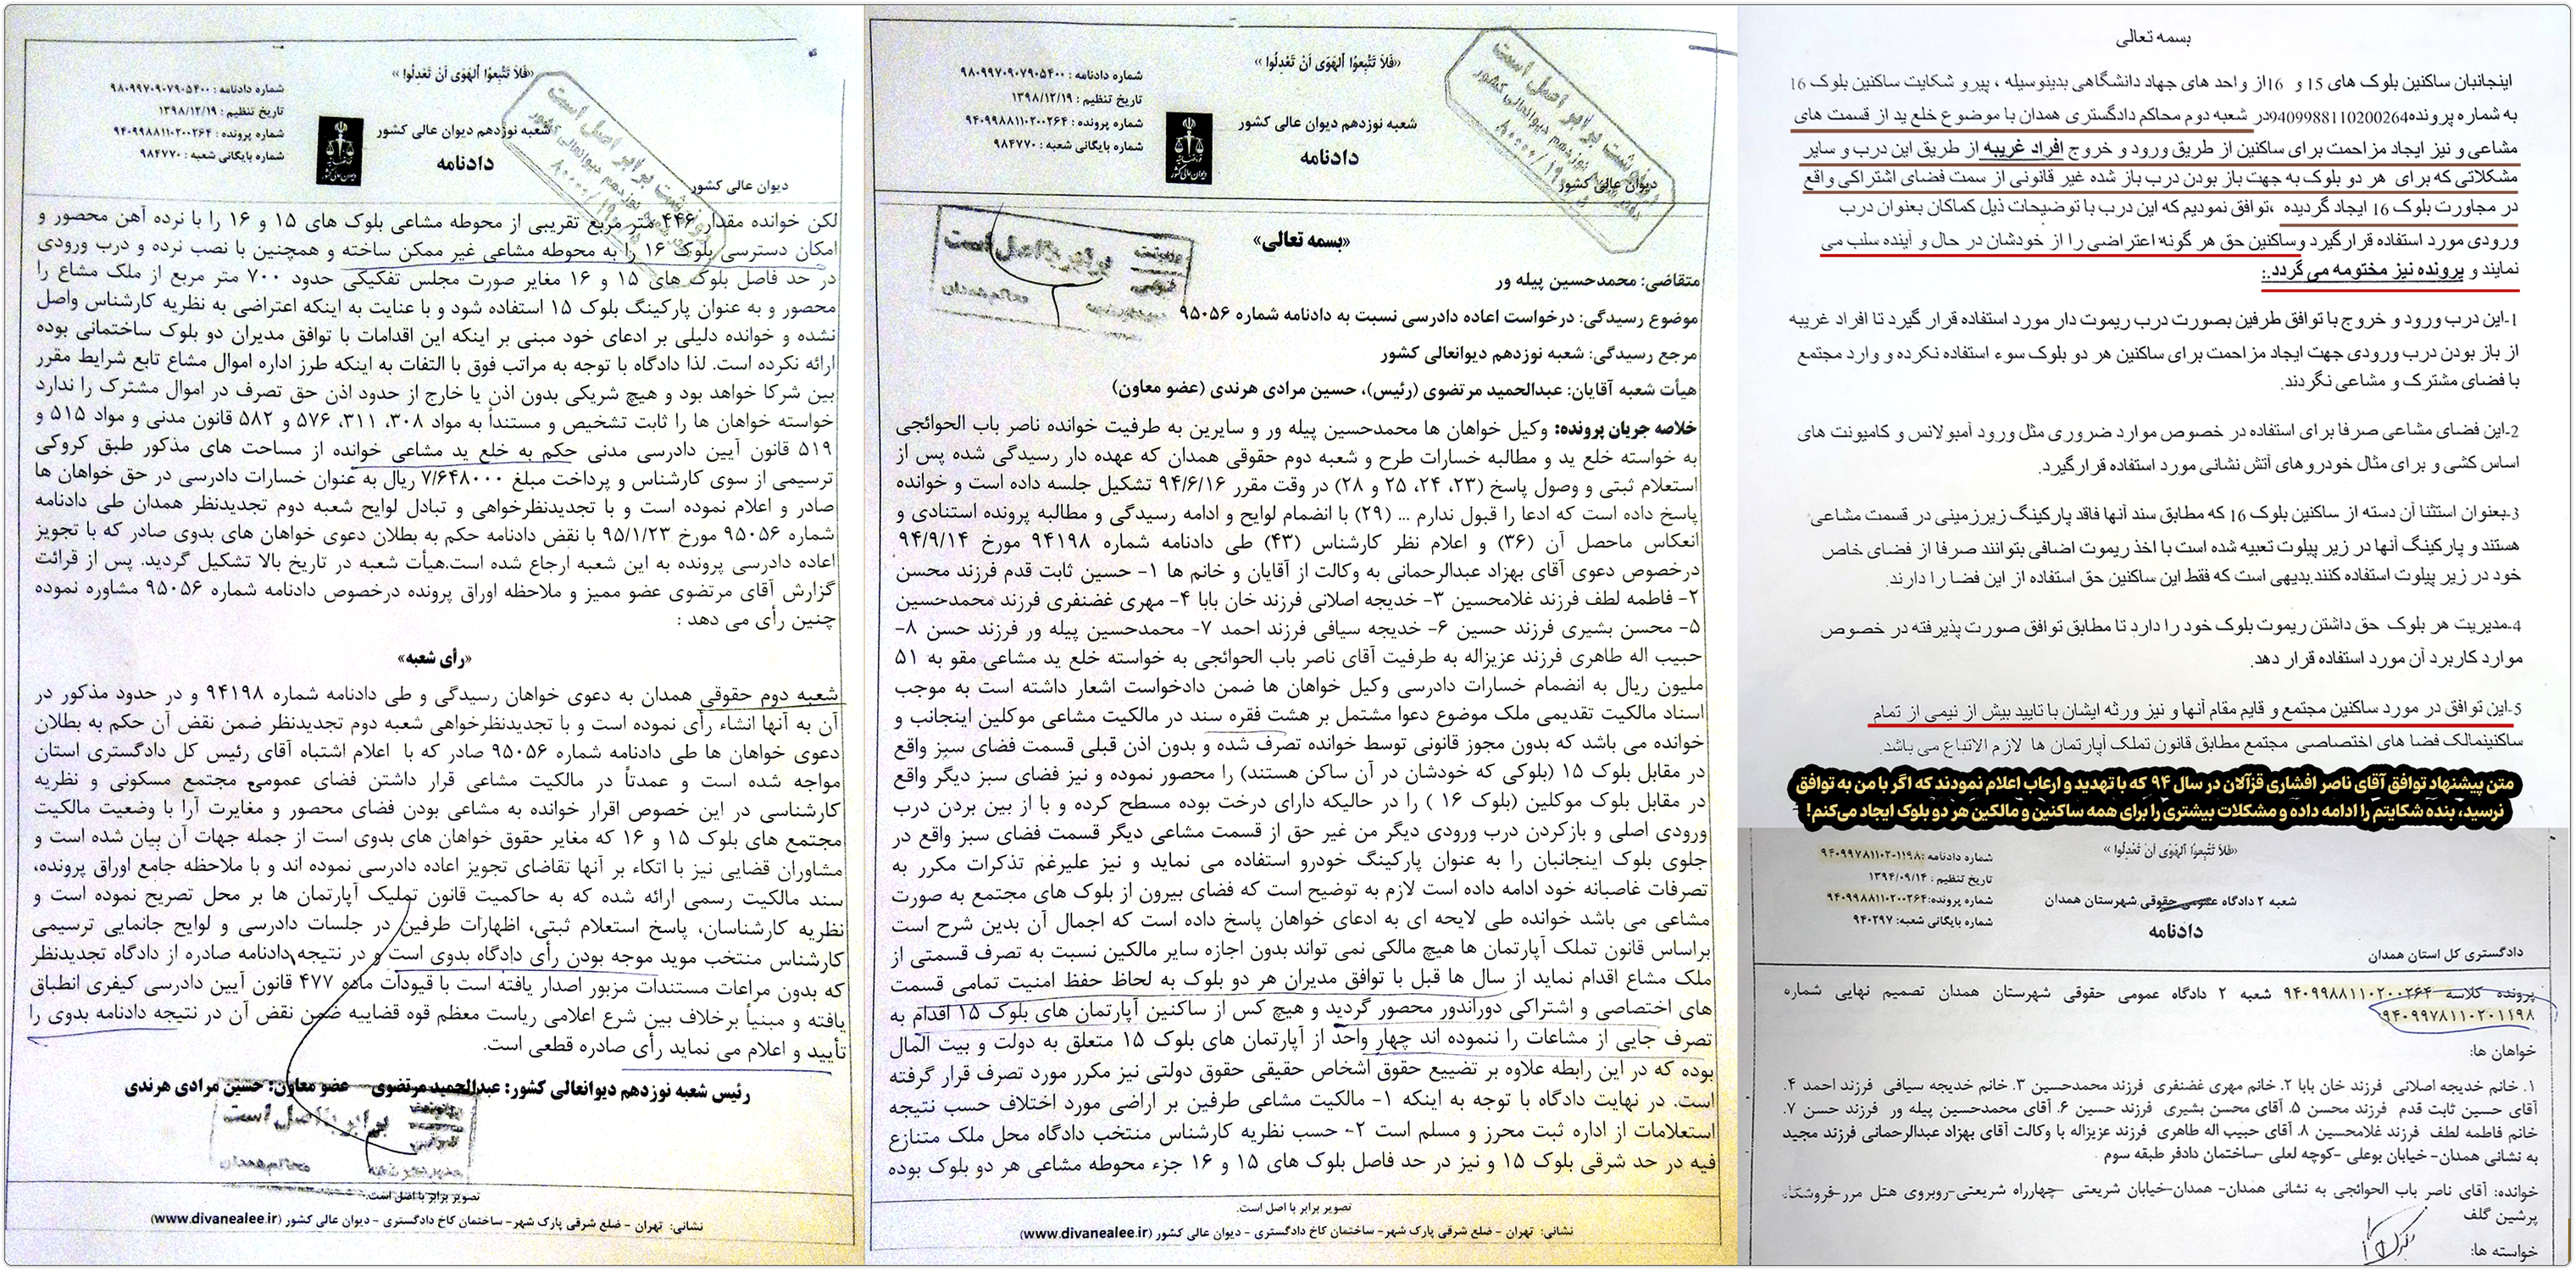 بسمه تعالی
اینجانبان ساکنین بلوک های 15 و 16از واحد های جهاد دانشگاهی بدینوسیله ، پیرو شکایت ساکنین بلوک 16
به شماره پرونده9409988110200264در شعبه دوم محاکم دادگستری همدان با موضوع خلع ید از قسمت های
مشاعی و نیز ایجاد مزاحمت برای ساکنین از طریق ورود و خروج افراد غریبه از طریق این درب و سایر
مشکلاتی که برای هر دو بلوک به جهت باز بودن درب باز شده غیر قانونی از سمت فضای اشتراکی واقع
در مجاورت بلوک 16 ایجاد گردیده ،توافق نمودیم که این درب با توضیحات ذیل کماکان بعنوان درب
ورودی مورد استفاده قرارگیرد وساکنین حق هر گونه اعتراضی را از خودشان در حال و آینده سلب می
نمایند و پرونده نیز مختومه می گردد.:
1-این درب ورود و خروج با توافق طرفین بصورت درب ریموت دار مورد استفاده قرار گیرد تا افراد غریبه
از باز بودن درب ورودی جهت ایجاد مزاحمت برای ساکنین هر دو بلوک سوء استفاده نکرده و وارد مجتمع
با فضای مشترک و مشاعی نگردند.
2-این فضای مشاعی صرفا برای استفاده در خصوص موارد ضروری مثل ورود آمبولانس و کامیونت های
اساس کشی و برای مثال خودروهای آتش نشانی مورد استفاده قرارگیرد.
3-بعنوان استثنا آن دسته از ساکنین بلوک 16 که مطابق سند آنها فاقد پارکینگ زیرزمینی در قسمت مشاعی
هستند و پارکینگ آنها در زیر پیلوت تعبیه شده است با اخذ ریموت اضافی بتوانند صرفا از فضای خاص
خود در زیر پیلوت استفاده کنند.بدیهی است که فقط این ساکنین حق استفاده از این فضا را دارند.
4-مدیریت هر بلوک حق داشتن ریموت بلوک خود را دارد تا مطابق توافق صورت پذیرفته در خصوص
موارد کاربرد آن مورد استفاده قرار دهد.
5-این توافق در مورد ساکنین مجتمع و قایم مقام آنها و نیز ورثه ایشان با تایید بیش از نیمی از تمام
ساکنینمالک فضا های اختصاصی مجتمع مطابق قانون تملک آپارتمان ها لازم الاتباع می باشد.
متن پیشنهاد توافق آقای ناصر افشاری قزآلان در سال ۹۴ که با تهدید و ارعاب اعلام نمودند که اگر با من به توافق
نرسید، بنده شکایتم را ادامه داده و مشکلات بیشتری را برای همه ساکنین و مالکین هر دو بلوک ایجاد می‌کنم!
«فَلاَ تَتَّبِعوُا اَلهَوَی اَنْ تَعْدِلُوا »
شماره دادنامه :۹۴۰۹۹۷۸۱۱۰۲۰۱۱۹۸
تاریخ تنظیم : ۱۳۹۴/۰۹/۱۴
شماره پرونده:۹۴۰۹۹۸۸۱۱۰۲۰۰۲۶۴
شماره بایگانی شعبه: ۹۴۰۲۹۷
شعبه ۲ دادگاه عمومی حقوقی شهرستان همدان
دادنامه
دادگستری کل استان همدان
پرونده کلاسه ۹۴۰۹۹۸۸۱۱۰۲۰۰۲۶۴ شعبه ۲ دادگاه عمومی حقوقی شهرستان همدان تصمیم نهایی شماره
۹۴۰۹۹۷۸۱۱۰۲۰۱۱۹۸
خواهان ها:
۱. خانم خدیجه اصلانی فرزند خان بابا ۲. خانم مهری غضنفری فرزند محمدحسین ۳. خانم خدیجه سیافی فرزند احمد ۴.
آقای حسین ثابت قدم فرزند محسن ۵. آقای محسن بشیری فرزند حسین ۶. آقای محمدحسین پیله ور فرزند حسن ۷.
خانم فاطمه لطف فرزند غلامحسین ۸. آقای حبیب اله طاهری فرزند عزیزاله با وکالت آقای بهزاد عبدالرحمانی فرزند مجید
به نشانی همدان- خیابان بوعلی -کوچه لعلی -ساختمان دادفر طبقه سوم
خوانده: آقای ناصر باب الحوائجی به نشانی همدان- همدان-خیابان شریعتی -چهارراه شریعتی-روبروی هتل مرر-فروشگاه
پرشین گلف
خواسته ها:
«فَلاَ تَتَّبِعوُا اَلهَوَی اَنْ تَعْدِلُوا »
شماره دادنامه : ۹۸۰۹۹۷۰۹۰۷۹۰۵۴۰۰
تاریخ تنظیم : ۱۳۹۸/۱۲/۱۹
شماره پرونده : ۹۴۰۹۹۸۸۱۱۰۲۰۰۲۶۴
شماره بایگانی شعبه : ۹۸۴۷۷۰
شعبه نوزدهم دیوان عالی کشور
دادنامه
دیوان عالی کشور
رونوشت برابر اصل است
«بسمه تعالی»
برابر با اصل است
متقاضی: محمدحسین پیله ور
موضوع رسیدگی: درخواست اعاده دادرسی نسبت به دادنامه شماره ۹۵۰۵۶
مرجع رسیدگی: شعبه نوزدهم دیوانعالی کشور
هیأت شعبه آقایان: عبدالحمید مرتضوی (رئیس)، حسین مرادی هرندی (عضو معاون)
خلاصه جریان پرونده: وکیل خواهان ها محمدحسین پیله ور و سایرین به طرفیت خوانده ناصر باب الحوائجی
به خواسته خلع ید و مطالبه خسارات طرح و شعبه دوم حقوقی همدان که عهده دار رسیدگی شده پس از
استعلام ثبتی و وصول پاسخ (۲۳، ۲۴، ۲۵ و ۲۸) در وقت مقرر ۹۴/۶/۱۶ تشکیل جلسه داده است و خوانده
پاسخ داده است که ادعا را قبول ندارم ... (۲۹) با انضمام لوایح و ادامه رسیدگی و مطالبه پرونده استنادی و
انعکاس ماحصل آن (۳۶) و اعلام نظر کارشناس (۴۳) طی دادنامه شماره ۹۴۱۹۸ مورخ ۹۴/۹/۱۴
درخصوص دعوی آقای بهزاد عبدالرحمانی به وکالت از آقایان و خانم ها ۱- حسین ثابت قدم فرزند محسن
۲- فاطمه لطف فرزند غلامحسین ۳- خدیجه اصلانی فرزند خان بابا ۴- مهری غضنفری فرزند محمدحسین
۵- محسن بشیری فرزند حسین ۶- خدیجه سیافی فرزند احمد ۷- محمدحسین پیله ور فرزند حسن ۸-
حبیب اله طاهری فرزند عزیزاله به طرفیت آقای ناصر باب الحوائجی به خواسته خلع ید مشاعی مقو به ۵۱
ملیون ریال به انضمام خسارات دادرسی وکیل خواهان ها ضمن دادخواست اشعار داشته است به موجب
اسناد مالکیت تقدیمی ملک موضوع دعوا مشتمل بر هشت فقره سند در مالکیت مشاعی موکلین اینجانب و
خوانده می باشد که بدون مجوز قانونی توسط خوانده تصرف شده و بدون اذن قبلی قسمت فضای سبز واقع
در مقابل بلوک ۱۵ (بلوکی که خودشان در آن ساکن هستند) را محصور نموده و نیز فضای سبز دیگر واقع
در مقابل بلوک موکلین (بلوک ۱۶ ) را در حالیکه دارای درخت بوده مسطح کرده و با از بین بردن درب
ورودی اصلی و بازکردن درب ورودی دیگر من غیر حق از قسمت مشاعی دیگر قسمت فضای سبز واقع در
جلوی بلوک اینجانبان را به عنوان پارکینگ خودرو استفاده می نماید و نیز علیرغم تذکرات مکرر به
تصرفات غاصبانه خود ادامه داده است لازم به توضیح است که فضای بیرون از بلوک های مجتمع به صورت
مشاعی می باشد خوانده طی لایحه ای به ادعای خواهان پاسخ داده است که اجمال آن بدین شرح است
براساس قانون تملک آپارتمان ها هیچ مالکی نمی تواند بدون اجازه سایر مالکین نسبت به تصرف قسمتی از
ملک مشاع اقدام نماید از سال ها قبل با توافق مدیران هر دو بلوک به لحاظ حفظ امنیت تمامی قسمت
های اختصاصی و اشتراکی دوراندور محصور گردید و هیچ کس از ساکنین آپارتمان های بلوک ۱۵ اقدام به
تصرف جایی از مشاعات را ننموده اند چهار واحد از آپارتمان های بلوک ۱۵ متعلق به دولت و بیت المال
بوده که در این رابطه علاوه بر تضییع حقوق اشخاص حقیقی حقوق دولتی نیز مکرر مورد تصرف قرار گرفته
است. در نهایت دادگاه با توجه به اینکه ۱- مالکیت مشاعی طرفین بر اراضی مورد اختلاف حسب نتیجه
استعلامات از اداره ثبت محرز و مسلم است ۲- حسب نظریه کارشناس منتخب دادگاه محل ملک متنازع
فیه در حد شرقی بلوک ۱۵ و نیز در حد فاصل بلوک های ۱۵ و ۱۶ جزء محوطه مشاعی هر دو بلوک بوده
تصویر برابر با اصل است.
نشانی: تهران - ضلع شرقی پارک شهر- ساختمان کاخ دادگستری - دیوان عالی کشور (www.divanealee.ir)
«فَلاَ تَتَّبِعوُا اَلهَوَی اَنْ تَعْدِلُوا »
شماره دادنامه : ۹۸۰۹۹۷۰۹۰۷۹۰۵۴۰۰
تاریخ تنظیم : ۱۳۹۸/۱۲/۱۹
شماره پرونده : ۹۴۰۹۹۸۸۱۱۰۲۰۰۲۶۴
شماره بایگانی شعبه : ۹۸۴۷۷۰
شعبه نوزدهم دیوان عالی کشور
دادنامه
دیوان عالی کشور
لکن خوانده مقدار ۴۴۶ متر مربع تقریبی از محوطه مشاعی بلوک های ۱۵ و ۱۶ را با نرده آهن محصور و
امکان دسترسی بلوک ۱۶ را به محوطه مشاعی غیر ممکن ساخته و همچنین با نصب نرده و درب ورودی
در حد فاصل بلوک های ۱۵ و ۱۶ مغایر صورت مجلس تفکیکی حدود ۷۰۰ متر مربع از ملک مشاع را
محصور و به عنوان پارکینگ بلوک ۱۵ استفاده شود و با عنایت به اینکه اعتراضی به نظریه کارشناس واصل
نشده و خوانده دلیلی بر ادعای خود مبنی بر اینکه این اقدامات با توافق مدیران دو بلوک ساختمانی بوده
ارائه نکرده است. لذا دادگاه با توجه به مراتب فوق با التفات به اینکه طرز اداره اموال مشاع تابع شرایط مقرر
بین شرکا خواهد بود و هیچ شریکی بدون اذن یا خارج از حدود اذن حق تصرف در اموال مشترک را ندارد
خواسته خواهان ها را ثابت تشخیص و مستنداً به مواد ۳۰۸، ۳۱۱، ۵۷۶ و ۵۸۲ قانون مدنی و مواد ۵۱۵ و
۵۱۹ قانون آیین دادرسی مدنی حکم به خلع ید مشاعی خوانده از مساحت های مذکور طبق کروکی
ترسیمی از سوی کارشناس و پرداخت مبلغ ۷/۶۴۸۰۰۰ ریال به عنوان خسارات دادرسی در حق خواهان ها
صادر و اعلام نموده است و با تجدیدنظرخواهی و تبادل لوایح شعبه دوم تجدیدنظر همدان طی دادنامه
شماره ۹۵۰۵۶ مورخ ۹۵/۱/۲۳ با نقض دادنامه حکم به بطلان دعوی خواهان های بدوی صادر که با تجویز
اعاده دادرسی پرونده به این شعبه ارجاع شده است.هیأت شعبه در تاریخ بالا تشکیل گردید. پس از قرائت
گزارش آقای مرتضوی عضو ممیز و ملاحظه اوراق پرونده درخصوص دادنامه شماره ۹۵۰۵۶ مشاوره نموده
چنین رأی می دهد :
«رأی شعبه»
شعبه دوم حقوقی همدان به دعوی خواهان رسیدگی و طی دادنامه شماره ۹۴۱۹۸ و در حدود مذکور در
آن به آنها انشاء رأی نموده است و با تجدیدنظرخواهی شعبه دوم تجدیدنظر ضمن نقض آن حکم به بطلان
دعوی خواهان ها طی دادنامه شماره ۹۵۰۵۶ صادر که با اعلام اشتباه آقای رئیس کل دادگستری استان
مواجه شده است و عمدتاً در مالکیت مشاعی قرار داشتن فضای عمومی مجتمع مسکونی و نظریه
کارشناسی در این خصوص اقرار خوانده به مشاعی بودن فضای محصور و مغایرت آرا با وضعیت مالکیت
مجتمع های بلوک ۱۵ و ۱۶ که مغایر حقوق خواهان های بدوی است از جمله جهات آن بیان شده است و
مشاوران قضایی نیز با اتکاء بر آنها تقاضای تجویز اعاده دادرسی نموده اند و با ملاحظه جامع اوراق پرونده،
سند مالکیت رسمی ارائه شده که به حاکمیت قانون تملیک آپارتمان ها بر محل تصریح نموده است و
نظریه کارشناسان، پاسخ استعلام ثبتی، اظهارات طرفین در جلسات دادرسی و لوایح جانمایی ترسیمی
کارشناس منتخب موید موجه بودن رأی دادگاه بدوی است و در نتیجه دادنامه صادره از دادگاه تجدیدنظر
که بدون مراعات مستندات مزبور اصدار یافته است با قیودات ماده ۴۷۷ قانون آیین دادرسی کیفری انطباق
یافته و مبنیاً برخلاف بین شرع اعلامی ریاست معظم قوه قضاییه ضمن نقض آن در نتیجه دادنامه بدوی را
تأیید و اعلام می نماید رأی صادره قطعی است.
رئیس شعبه نوزدهم دیوانعالی کشور: عبدالحمید مرتضوی عضو معاون: حسین مرادی هرندی
برابر با اصل است
تصویر برابر با اصل است.
نشانی: تهران - ضلع شرقی پارک شهر- ساختمان کاخ دادگستری - دیوان عالی کشور (www.divanealee.ir)